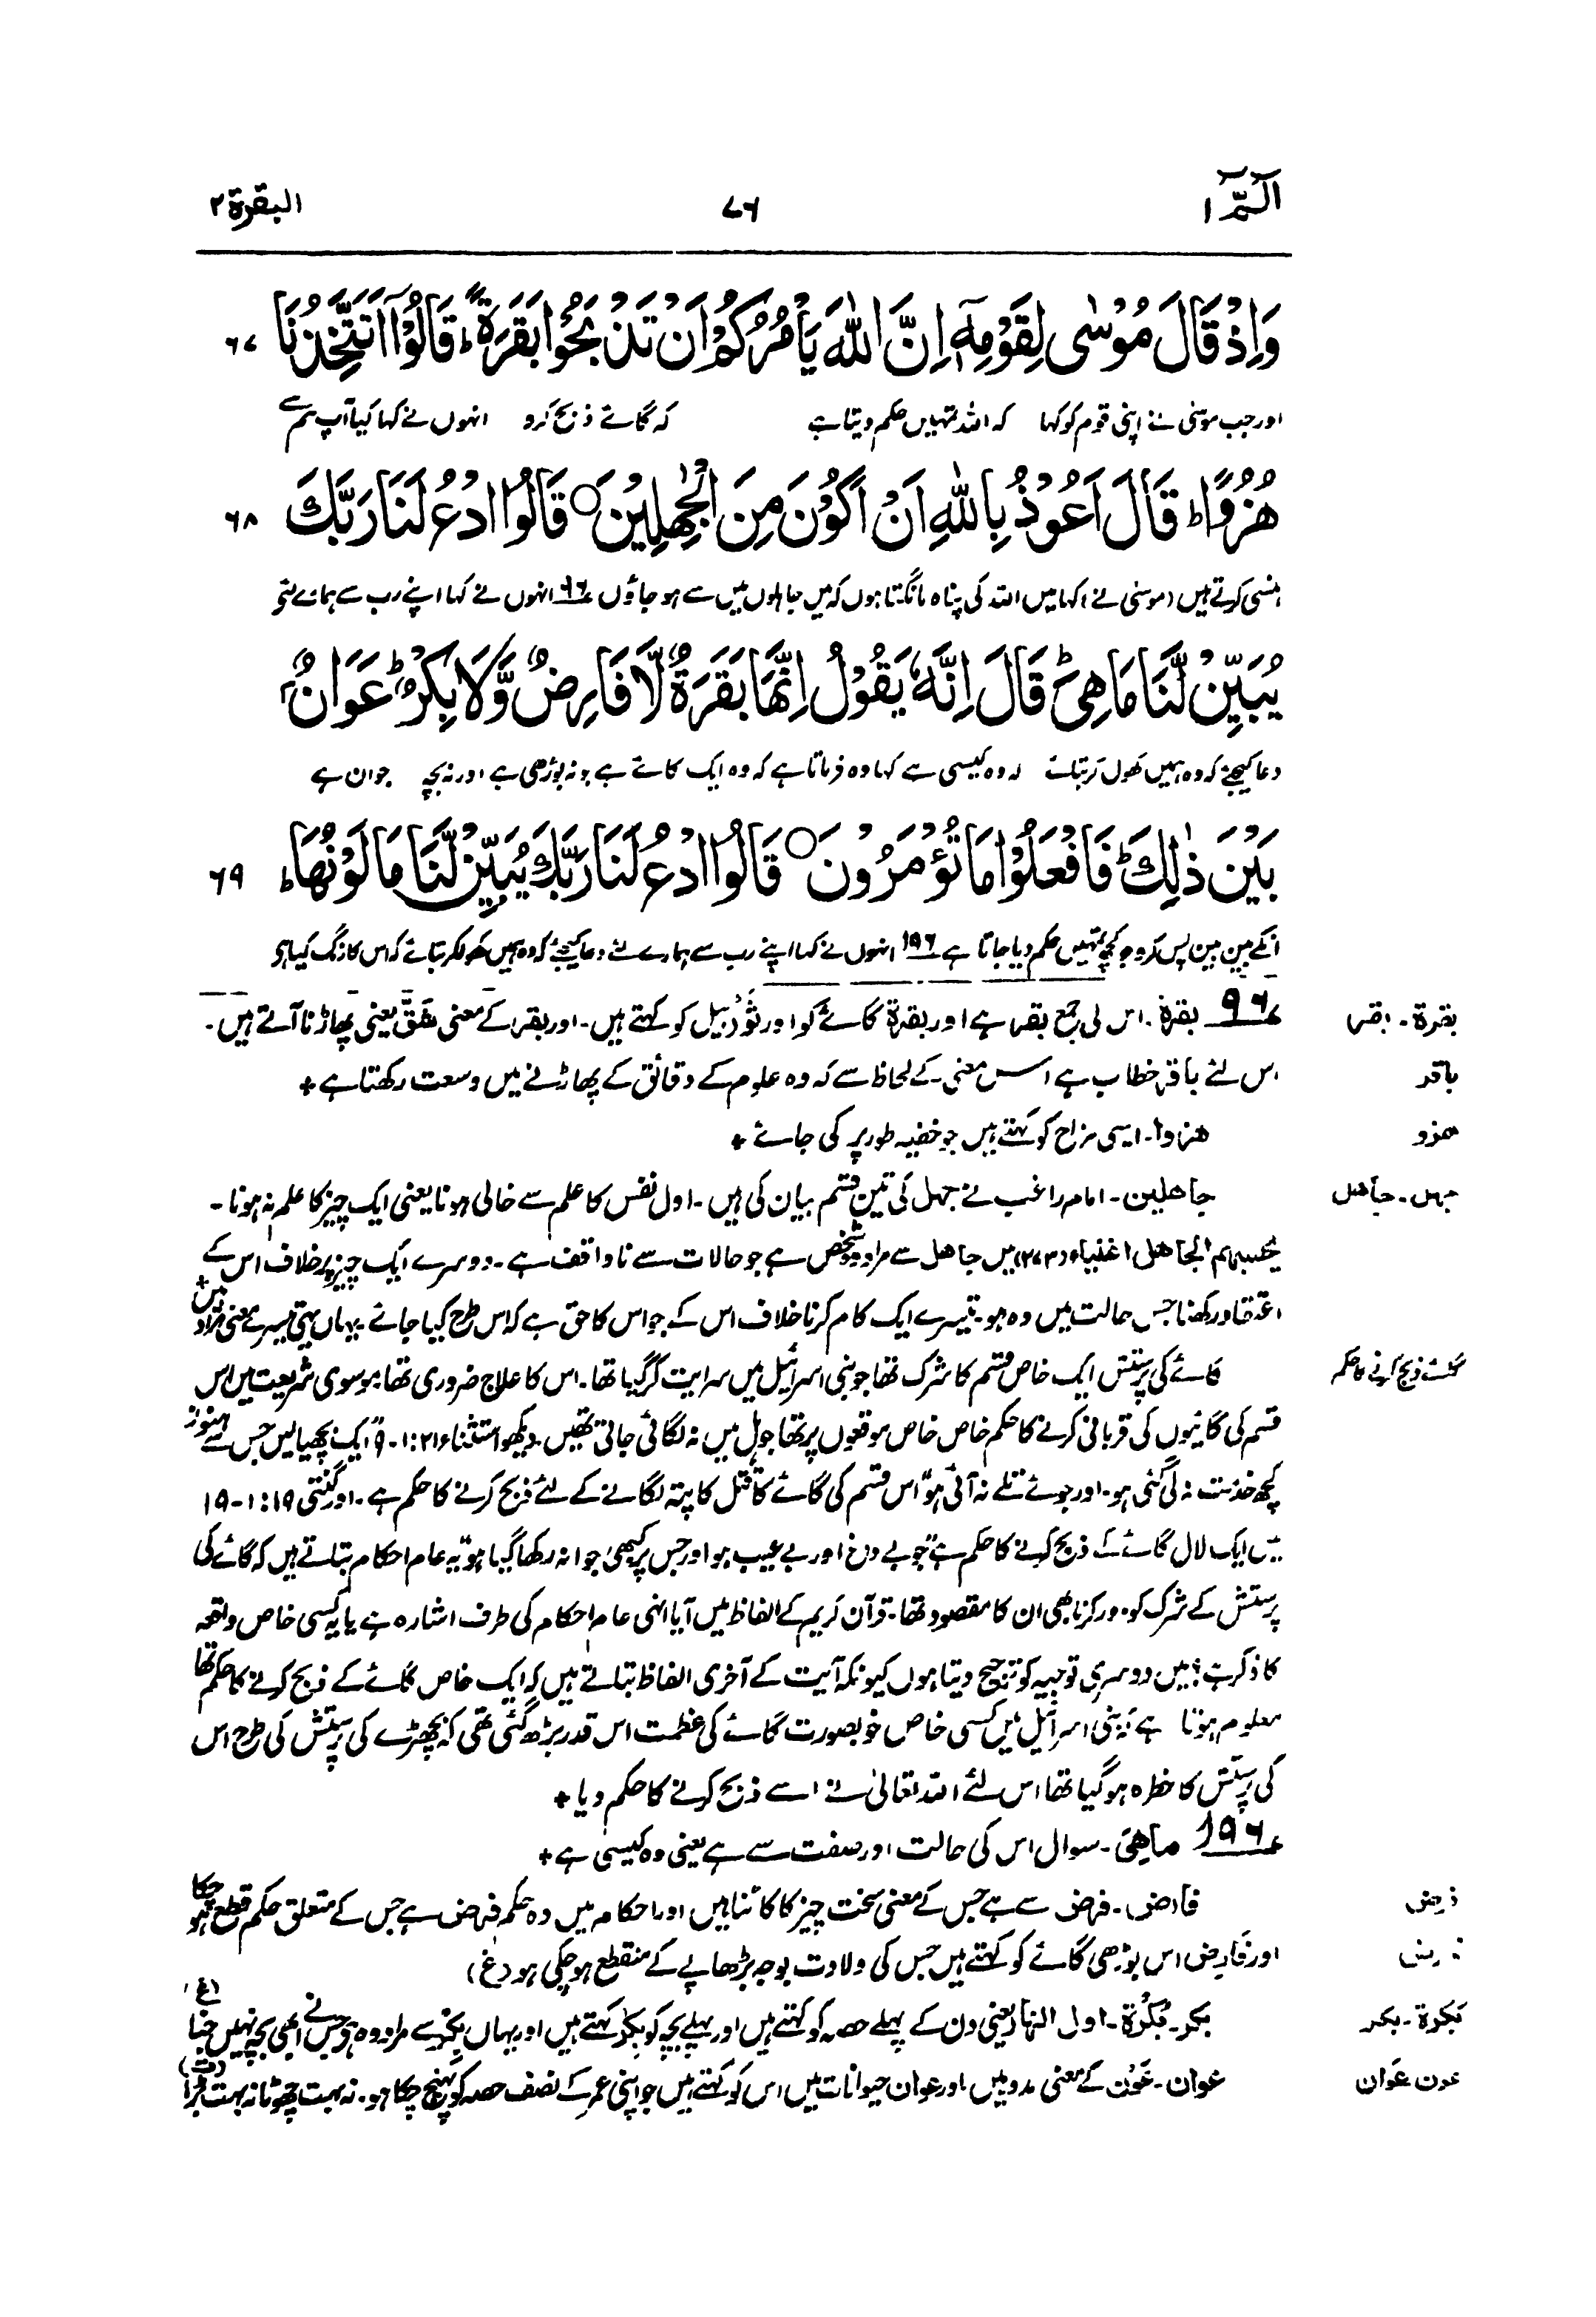 الٓمّٓ ۱ ۷۶ البقرة ۲
وَاِذْ قَالَ مُوْسٰی لِقَوْمِهٖۤ اِنَّ اللّٰهَ یَاْمُرُكُمْ اَنْ تَذْبَحُوْا بَقَرَةً ؕ قَالُوْۤا اَتَتَّخِذُنَا ۶۷
اور جب موسٰی نے اپنی قوم کو کہا کہ اللہ تمہیں حکم دیتا ہے کہ گائے ذبح کرو انہوں نے کہا کیا آپ ہم سے
هُزُوًا ؕ قَالَ اَعُوْذُ بِاللّٰهِ اَنْ اَكُوْنَ مِنَ الْجٰهِلِیْنَ ○ قَالُوا ادْعُ لَنَا رَبَّكَ ۶۸
ہنسی کرتے ہیں (موسٰی نے) کہا میں اللہ کی پناہ مانگتا ہوں کہ میں جاہلوں میں سے ہو جاؤں ۹۶ انہوں نے کہا اپنے رب سے ہمارے لئے
یُبَیِّنْ لَّنَا مَا هِیَ ؕ قَالَ اِنَّهٗ یَقُوْلُ اِنَّهَا بَقَرَةٌ لَّا فَارِضٌ وَّلَا بِكْرٌ ؕ عَوَانٌۢ
دعا کیجئے کہ وہ ہمیں کھول کر بتائے کہ وہ کیسی ہے کہا وہ فرماتا ہے کہ وہ ایک گائے ہے جو نہ بوڑھی ہے اور نہ بچہ جوان ہے
بَیْنَ ذٰلِكَ ؕ فَافْعَلُوْا مَا تُؤْمَرُوْنَ ○ قَالُوا ادْعُ لَنَا رَبَّكَ یُبَیِّنْ لَّنَا مَا لَوْنُهَا ؕ ۶۹
انکے بین بین پس کرو جو کچھ تمہیں حکم دیا جاتا ہے ۹۶ا انہوں نے کہا اپنے رب سے ہمارے لئے دعا کیجئے کہ وہ ہمیں کھولکر بتائے کہ اس کا رنگ کیا ہو
بقرة - بقر ۹۶ بقرة۔ اس کی جمع بقر ہے اور بقرة گائے کو اور ثَوْر بیل کو کہتے ہیں۔ اور بقر کے معنی شَقّ یعنی پھاڑنا آتے ہیں۔
باقر اس لئے باقر خطاب ہے اس معنی کے لحاظ سے کہ وہ علوم کے دقائق کے پھاڑنے میں وسعت رکھتا ہے +
ھزو ھزوا۔ ایسی مزاح کو کہتے ہیں جو خفیہ طور پر کی جائے +
جہل - جاھل جاھلین۔ امام راغب نے جہل کی تین قسم بیان کی ہیں۔ اول نفس کا علم سے خالی ہونا یعنی ایک چیز کا علم نہ ہونا۔
یحسبہم الجاھل اغنیاء (۲۷۳) میں جاھل سے مراد وہ شخص ہے جو حالات سے ناواقف ہے۔ دوسرے ایک چیز پر خلاف اس کے
اعتقاد رکھنا جس حالت میں وہ ہو۔ تیسرے ایک کام کرنا خلاف اس کے جو اس کا حق ہے کہ اس طرح کیا جائے۔ یہاں یہی تیسرے معنی مراد ہیں +
گائے ذبح کرنے کا حکم گائے کی پرستش ایک خاص قسم کا شرک تھا جو بنی اسرائیل میں سرایت کر گیا تھا۔ اس کا علاج ضروری تھا۔ موسوی شریعت میں اس
قسم کی گائیوں کی قربانی کرنے کا حکم خاص خاص موقعوں پر تھا جو ہل میں نہ لگائی جاتی تھیں۔ دیکھو استثناء ۲۱: ۱-۹ "ایک بچھیا لیں جس سے ہنوز
کچھ خدمت نہ لی گئی ہو۔ اور جوئے تلے نہ آئی ہو" اس قسم کی گائے کا قتل کا پتہ لگانے کے لئے ذبح کرنے کا حکم ہے۔ اور گنتی ۱۹: ۱-۱۹
میں ایک لال گائے کے ذبح کرنے کا حکم ہے "جو بے داغ اور بے عیب ہو اور جس پر کبھی جوا نہ رکھا گیا ہو" یہ عام احکام بتاتے ہیں کہ گائے کی
پرستش کے شرک کو دور کرنا بھی ان کا مقصود تھا۔ قرآن کریم کے الفاظ میں آیا انہی عام احکام کی طرف اشارہ ہے یا یہ کسی خاص واقعہ
کا ذکر ہے؟ میں دوسری توجیہ کو ترجیح دیتا ہوں کیونکہ آیت کے آخری الفاظ بتاتے ہیں کہ ایک خاص گائے کے ذبح کرنے کا حکم تھا
معلوم ہوتا ہے کہ بنی اسرائیل میں کسی خاص خوبصورت گائے کی عظمت اس قدر بڑھ گئی تھی کہ بچھڑے کی پرستش کی طرح اس
کی پرستش کا خطرہ ہو گیا تھا اس لئے اللہ تعالیٰ نے اسے ذبح کرنے کا حکم دیا +
۹۶ا ماھِیَ۔ سوال اس کی حالت اور صفت سے ہے یعنی وہ کیسی ہے +
فرض فارض۔ فرض سے ہے جس کے معنی سخت چیز کا کاٹنا ہیں اور احکام میں وہ حکم فرض ہے جس کے متعلق حکم قطع ہو چکا
فارض اور فَارِض اس بوڑھی گائے کو کہتے ہیں جس کی ولادت بوجہ بڑھاپے کے منقطع ہو چکی ہو (غ)
بُكرة - بكر بكر۔ بُكْرة۔ اول النہار یعنی دن کے پہلے حصہ کو کہتے ہیں اور پہلے بچہ کو بِکر کہتے ہیں اور یہاں بِکر سے مراد وہ ہے جس نے ابھی بچہ نہیں جنا (غ)
عون عَوان عوان۔ عَوْن کے معنی مدد ہیں اور عوان حیوانات میں اس کو کہتے ہیں جو اپنی عمر کے نصف حصہ کو پہنچ چکا ہو۔ نہ بہت چھوٹا نہ بہت بڑا (ت)